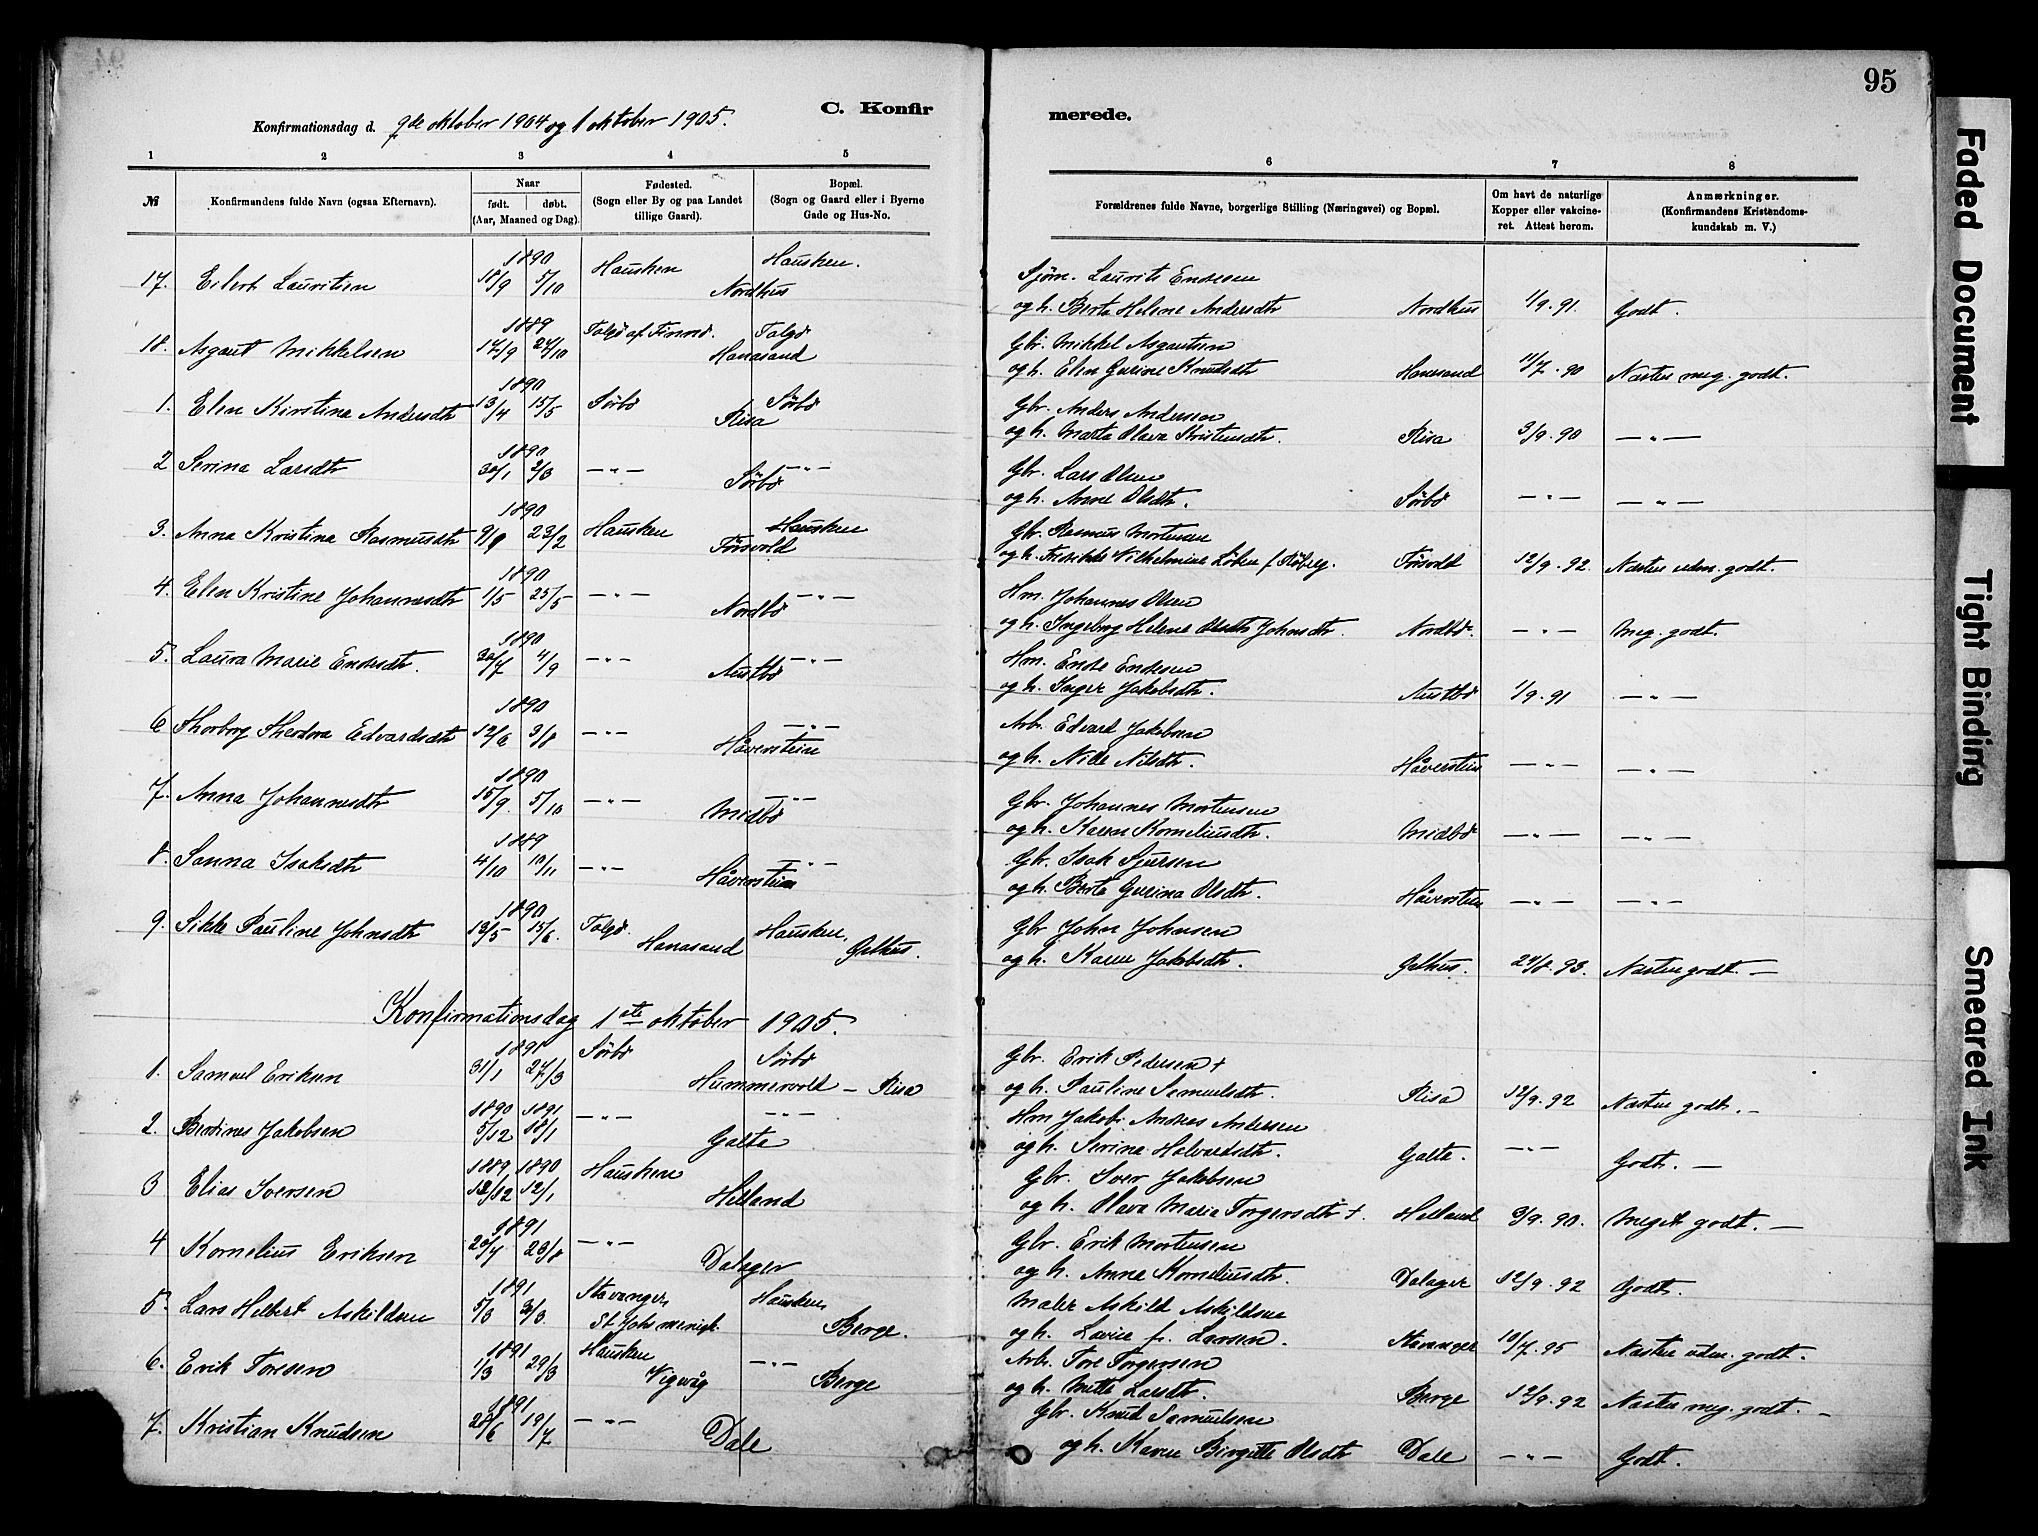 95
C. Konfir
merede.
Konfirmationsdag d. 9de oktober 1904 og 1 oktober 1905.
1 2 3 4 5
№ Konfirmandens fulde Navn (ogsaa Efternavn). Naar født. døbt. (Aar, Maaned og Dag). Fødested. (Sogn eller By og paa Landet tillige Gaard). Bopæl. (Sogn og Gaard eller i Byerne Gade og Hus-No.
6 7 8
Forældrenes fulde Navne, borgerlige Stilling (Næringsvei) og Bopæl. Om havt de naturlige Kopper eller vakcineret. Attest herom. Anmærkninger. (Konfirmandens Kristendomskundskab m. V.)
1890
17. Eilert Lauritsen 18/9 5/10 Hausken Nordhus Hausken.
Sjøm. Laurits Endesen
og h. Berta Helene Andersdtr Nordhus 1/9.91. Godt.
1889
18. Asgaut Mikkelsen 17/9 27/10 Talgø af Finnø. Hanasand Talgø
Gbr. Mikkel Asgautsen
og h. Elen Gurine Knudsdtr Hanasand 11/7.90 Næsten meg. godt.
1890
1. Elen Kirstina Andersdtr 13/4 15/5 Sørbø Risa Sørbø
Gbr. Anders Andersen
og h. Marta Olava Kristensdtr. Risa 3/9.90 — " —
1890
2 Serina Larsdtr 30/1 2/3 — " — Sørbø — " —
Gbr. Lars Olsen
og h. Anne Olsdtr. Sørbø — " — — " —
1890
3. Anna Kristina Rasmusdtr 23/2 Hausken Førsvold Hausken
Gbr. Rasmus Mortensen
og h. Fredrikke Vilhelmine Førsvold 12/9.92. Næsten uden. godt.
1890
4. Elen Kristine Johannesdtr 1/5 25/5 — " — Nordbø — " —
Hm. Johannes Olsen
og h. Ingeborg Helene Johnsdtr. Nordbø. — " — Meg. godt.
1890
5. Laura Marie Endesdtr. 30/7 4/9 — " — Austbø — " —
Hm. Ende Endesen
og h. Inger Jakobsdtr. Austbø 1/9.91 — " —
1890
6 Thorborg Theodora Edvardsdtr 12/6 3/8 — " — Håverstein — " —
Arb. Edvard Jakobsen
og h. Nille Nilsdtr. Håverstein — " — — " —
1890
7. Anna Johannesdtr 15/9. 5/10 — " — Midbø — " —
Gbr. Johannes Mortensen
og h. Karen Korneliusdtr. Midbø — " — — " —
1889
8. Sanna Isaksdtr 4/10 10/11 — " — Håverstein — " —
Gbr. Isak Sjursen
og h. Berta Gurina Olsdtr. Håverstein — " — — " —
1890
9. Sikke Pauline Johnsdtr 13/5 15/6. Talgø. Hanasand Hausken, Gelhus.
Gbr John Johnsen
og h. Karen Jakobsdtr. Gelhus. 24/8.93. Næsten godt. —
Konfirmationsdag 1ste oktober 1905.
1891
1. Samuel Eriksen 31/1 27/3 Sørbø Hummervold – Risa Sørbø
Gbr. Erik Pedersen +
og h. Pauline Samuelsdtr. Risa 12/9.92 Næsten godt. —
1890 1891
2. Berdines Jakobsen 5/12 18/1 — " — Galta — " —
Hm Jakob Andreas Andersen
og h. Serine Halvardsdtr. Galta. — " — Godt. —
1889 1890
3 Elias Iversen 12/12 12/1 Hausken Helland
Gbr. Iver Jakobsen
og h. Olava Maria Torgersdtr +. Helland 3/9.90. Meget godt. —
1891
4 Kornelius Eriksen 20/7 23/8 — " — Dalager
Gbr. Erik Mortensen
og h. Anna Korneliusdtr. Dalager 12/9.92 Godt.
1891
5. Lars Helbert Askildsen 5/3 31/3. Stavanger, St. Joh. menigh. Hausken, Berge.
Maler Askild Askildsen
og h. Lovise f. Larsen. Stavanger 10/7.95 Næsten uden. godt.
1891
6. Erik Toresen 1/3 29/3 Hausken Vigevåg — " — Berge
Arb. Tore Torgersen
og h. Mette Larsdtr. Berge 12/9.92 Næsten meg. godt. —
1891
7. Kristian Knudsen 28/6 19/7 — " — Dale
Gbr. Knud Samuelsen
og h. Karen Birgitte Olsdtr Dale — " — Godt.
Faded Document
Tight Binding
Smeared Ink